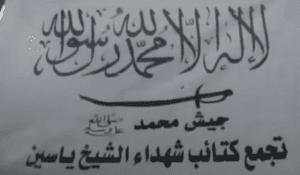 لا إله إلا الله محمد رسول الله
جيش محمد ﷺ
تجمع كتائب شهداء الشيخ ياسين